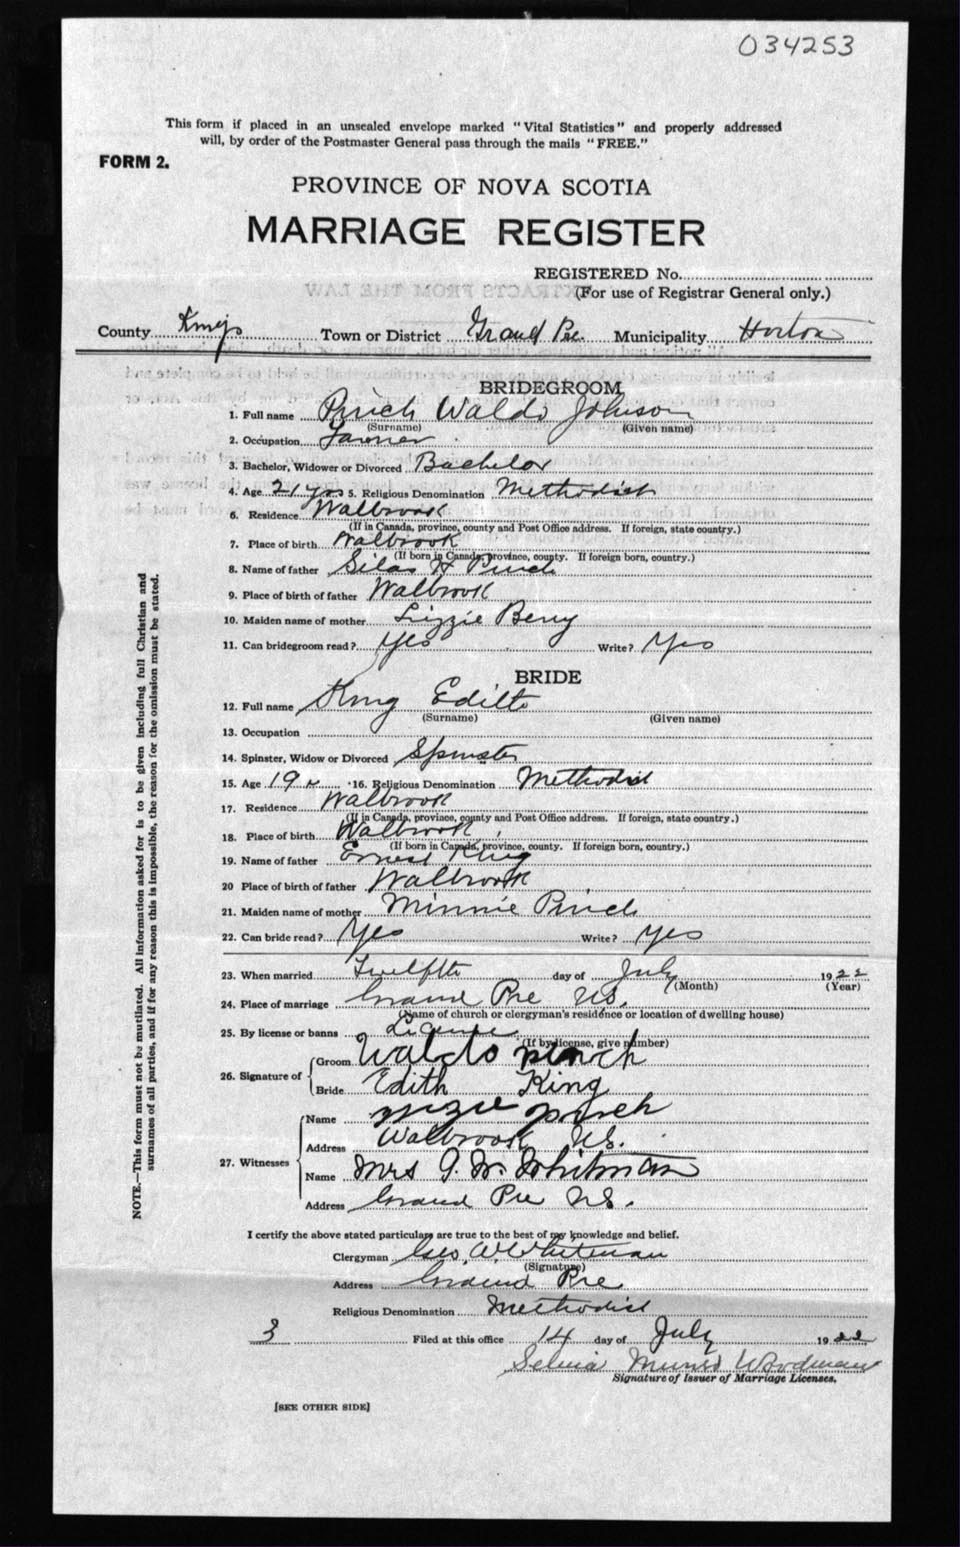 034253
This form if placed in an unsealed envelope marked "Vital Statistics" and properly addressed
will, by order of the Postmaster General pass through the mails "FREE."
FORM 2.
PROVINCE OF NOVA SCOTIA
MARRIAGE REGISTER
REGISTERED No.
(For use of Registrar General only.)
County Kings Town or District Grand Pre. Municipality Horton
BRIDEGROOM
1. Full name Pinch Waldo Johnson
(Surname) (Given name)
2. Occupation Farmer
3. Bachelor, Widower or Divorced Bachelor
4. Age 21 yrs 5. Religious Denomination Methodist
6. Residence Walbrook
(If in Canada, province, county and Post Office address. If foreign, state country.)
7. Place of birth Walbrook
(If born in Canada, province, county. If foreign born, country.)
8. Name of father Silas H Pinch
9. Place of birth of father Walbrook
10. Maiden name of mother Lizzie Berry
11. Can bridegroom read? Yes Write? Yes
BRIDE
12. Full name King Edith
(Surname) (Given name)
13. Occupation
14. Spinster, Widow or Divorced Spinster
15. Age 19 16. Religious Denomination Methodist
17. Residence Walbrook
(If in Canada, province, county and Post Office address. If foreign, state country.)
18. Place of birth Walbrook
(If born in Canada, province, county. If foreign born, country.)
19. Name of father Ernest King
20 Place of birth of father Walbrook
21. Maiden name of mother Minnie Pinch
22. Can bride read? Yes Write? Yes
23. When married Twelfth day of July 1922
(Month) (Year)
24. Place of marriage Grand Pre N.S.
(Name of church or clergyman's residence or location of dwelling house)
25. By license or banns License
(If by license, give number)
26. Signature of Groom Waldo pinch
Bride Edith King
27. Witnesses Name Lizzie pinch
Address Walbrook N.S.
Name Mrs G. W. Whitman
Address Grand Pre N.S.
I certify the above stated particulars are true to the best of my knowledge and belief.
Clergyman Geo. W. Whitman
(Signature)
Address Grand Pre
Religious Denomination Methodist
3 Filed at this office 14 day of July 1922
Selina Munro Woodman
Signature of Issuer of Marriage Licenses.
[SEE OTHER SIDE]
NOTE.—This form must not be mutilated. All information asked for is to be given including full Christian and
surnames of all parties, and if for any reason this is impossible, the reason for the omission must be stated.